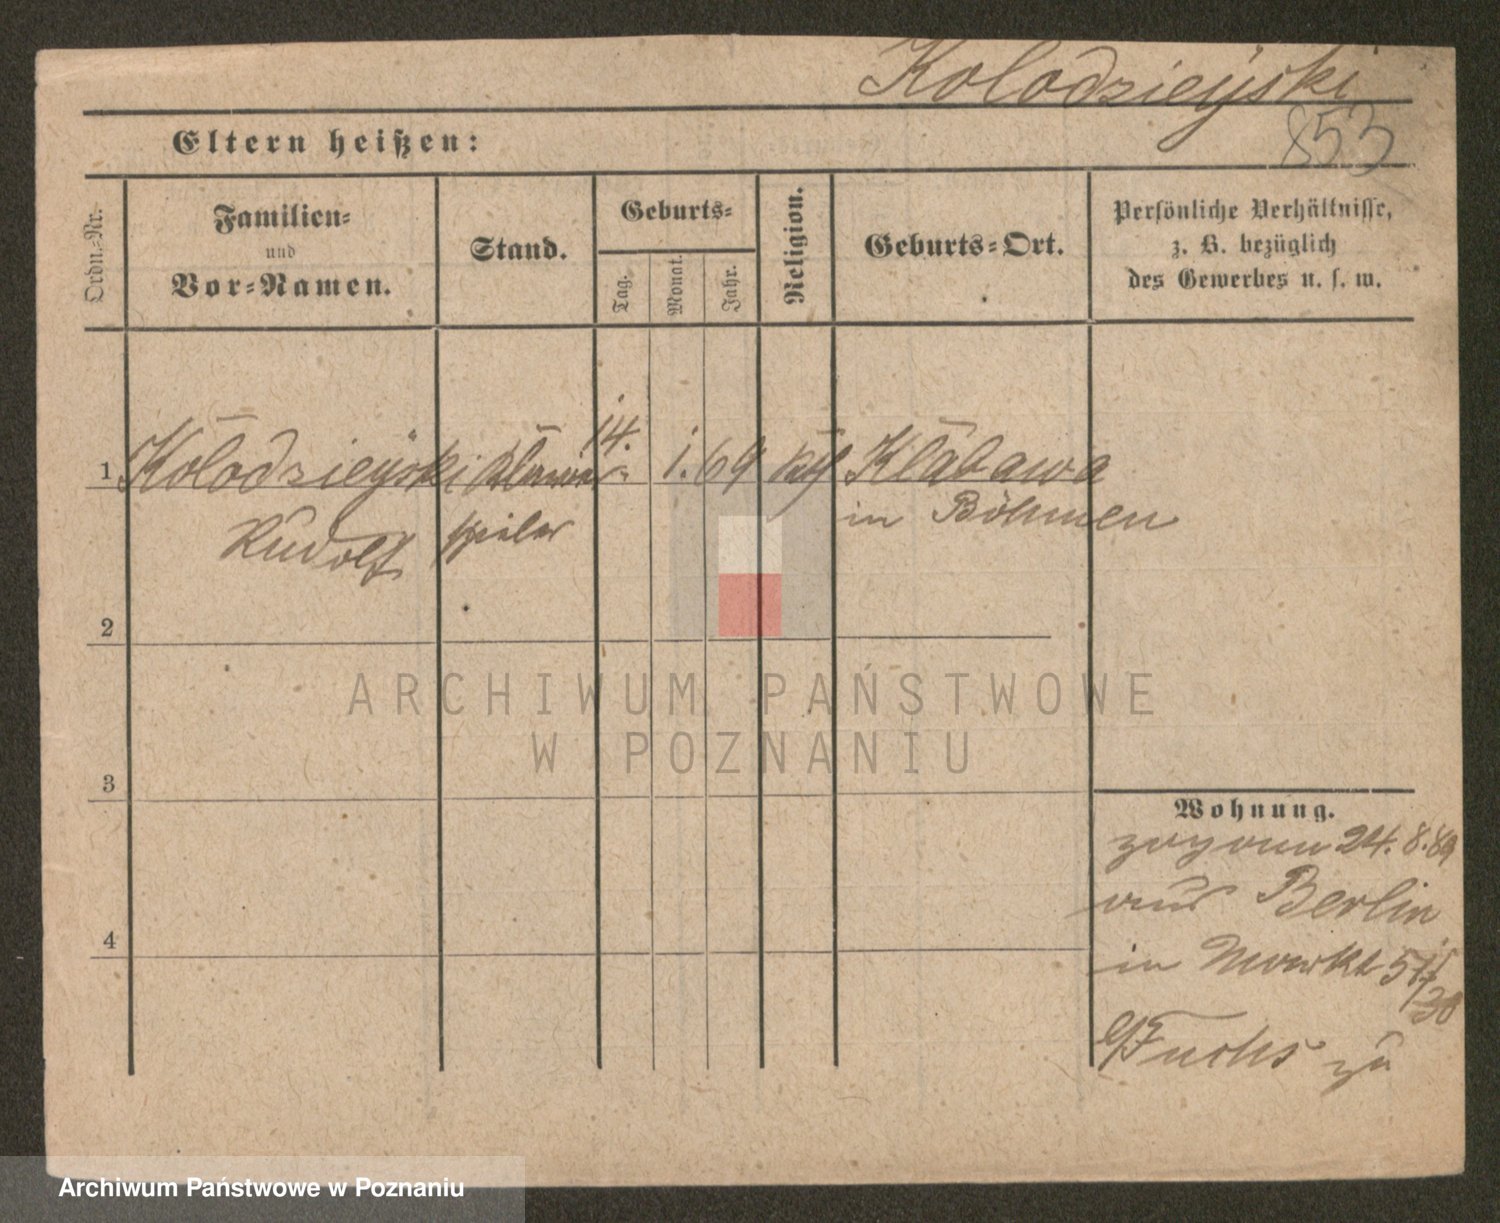 Kolodzieyski
853
Eltern heißen:
Ordn.-Nr.
Familien-
und
Vor-Namen.
Stand.
Geburts-
Tag.
Monat.
Jahr.
Religion.
Geburts-Ort.
Persönliche Verhältnisse,
z. B. bezüglich
des Gewerbes u. s. w.
1 Kolodzieyski Klavier 14. 1. 69 kath Klabawa
Rudolf spieler in Böhmen
2
3
4
Wohnung.
zugezogen 24. 8. 89
aus Berlin
in Markt
Fuchs zu
ARCHIWUM PAŃSTWOWE
W POZNANIU
Archiwum Państwowe w Poznaniu